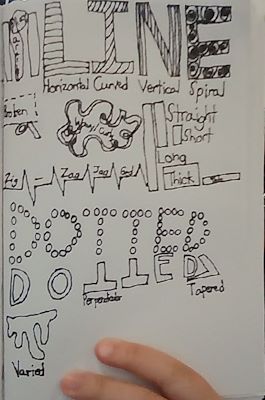 LINE
Horizontal Curved Vertical Spiral
Broken
Straight
Short
Long
Zig Zag Zag
Thick
DOTTED
DOTTED
Perpendicular
Tapered
Varied